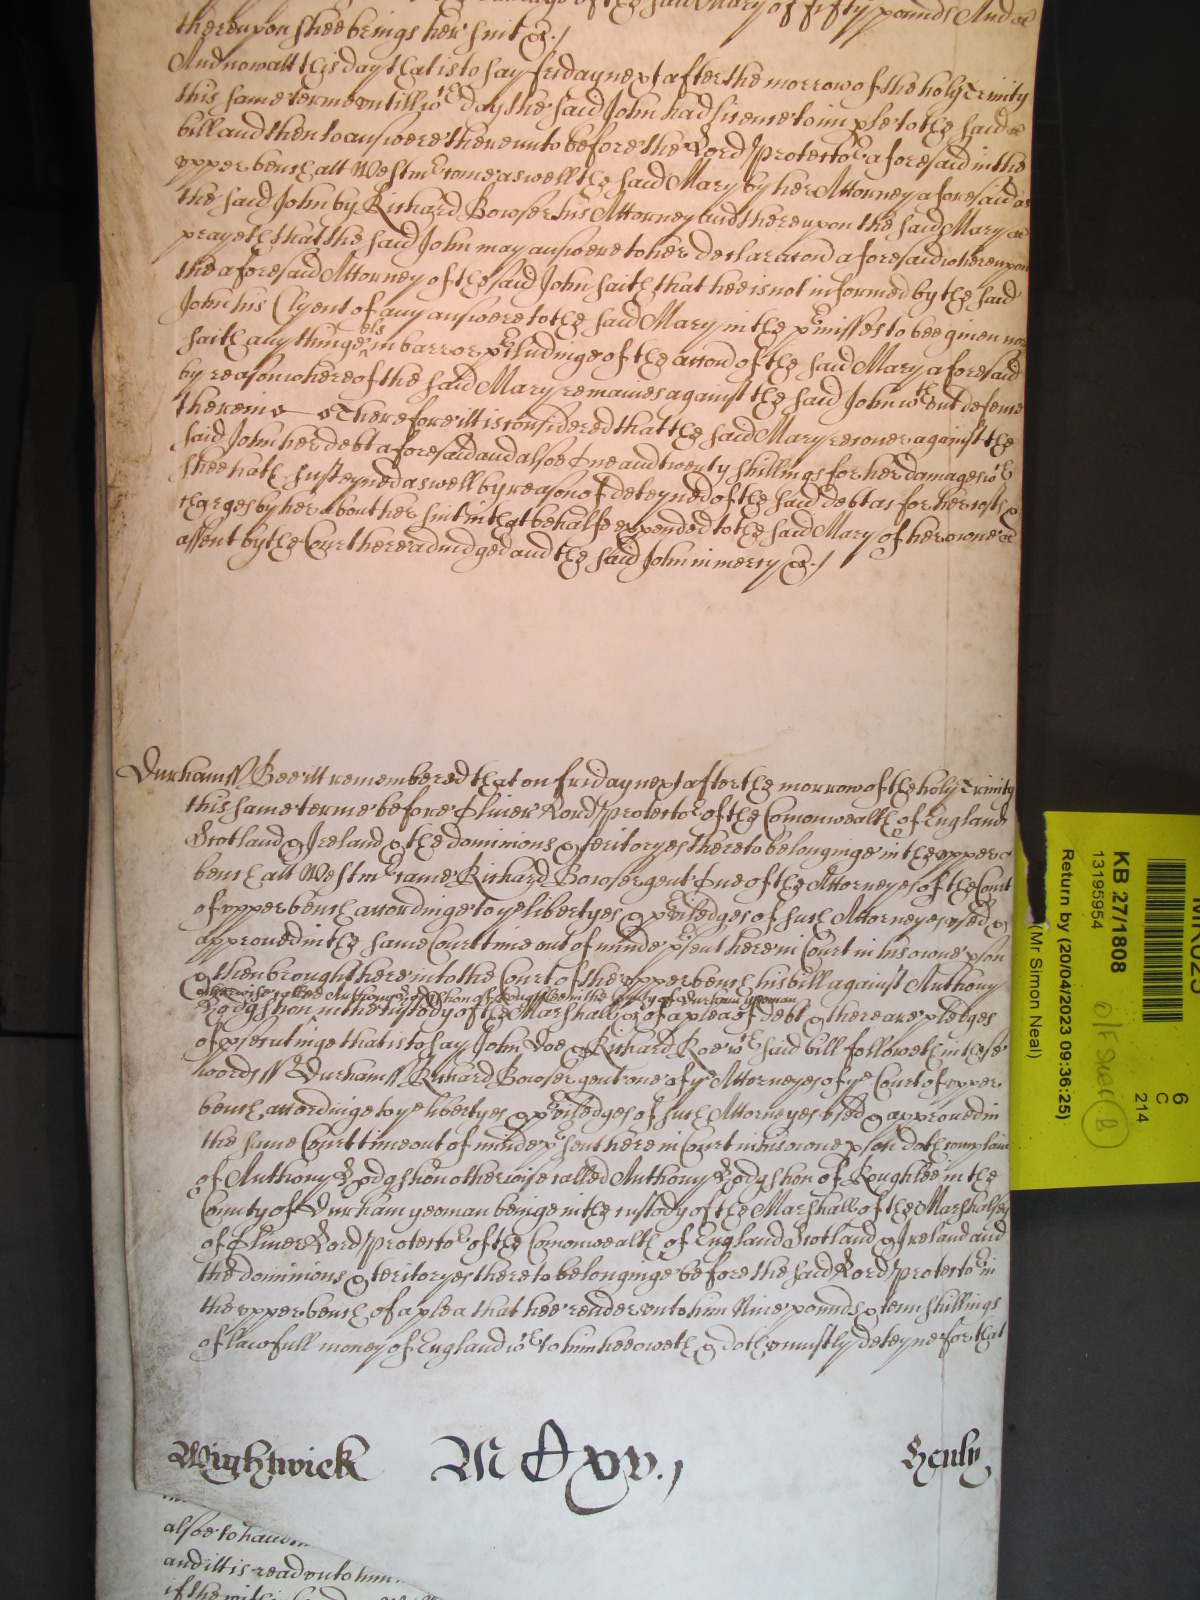 of the said Mary of fifty pounds And
thereupon shee brings her suit &c./
And now att this day that is to say friday next after the morrow of the holy Trinity
this same terme untill wch day the said John had licence to imple to the said
bill and then to answere thereunto before the Lord Protector aforesaid in the
vpper bench att Westmr came aswell the said Mary by her Attorney aforesaid as
the said John by Richard Bowser his Attorney and thereupon the said Mary
prayeth that the said John may answere to her declaracond aforesaid whereupon
the aforesaid Attorney of the said John saith that hee is not informed by the said
John his Clyent of any answere to the said Mary in the pmisses to bee giuen nor
saith any thinge els in barr or pcludinge of the accond of the said Mary aforesaid
by reason whereof the said Mary remaines against the said John wthout defense
therein Therefore itt is considered that the said Mary recouer against the
said John her debt aforesaid and alsoe One and twenty shillings for her damages wch
shee hath susteyned aswell by reason of deteyned of the said debt as for her costs &
charges by her about her suit in that behalfe expended to the said Mary of her owne
assent by the Court here adiudged and the said John in mercy &c./
Durham ss Bee itt remembered that on friday next after the morrow of the holy Trinity
this same terme before Oliuer Lord Protector of the Comonwealth of England
Scotland & Ireland & the dominions & teritoryes thereto belonginge in the vpper
bench att Westmr came Richard Bowser gent One of the Attorneyes of the Court
of vpper bench accordinge to ye libertyes & priledges of such Attorneyes vsed &
approued in the same Court time out of minde psent here in Court in his owne pson
& then brought here into the Court of the vpper bench his bill against Anthony
otherwise called Anthony Hodgshon of Roughlee in the County of Durham yeoman
Hodgshon in the custody of the Marshall &c of a plea of debt & there are pledges
of psecutinge that is to say John Doe & Richard Roe wch said bill followeth in these
words ss Durham ss Richard Bowser gent one of ye Attorneyes of ye Court of vpper
bench accordinge to ye libertyes & priledges of such Attorneyes vsed & approued in
the same Court time out of minde psent here in Court in his owne pson doth complaine
of Anthony Hodgshon otherwise called Anthony Hodgshon of Roughlee in the
County of Durham yeoman beinge in the custody of the Marshall of the Marshalsey
of Oliuer Lord Protector of the Comonwealth of England Scotland & Ireland and
the dominions & teritoryes thereto belonginge before the said Lord Protector in
the vpper bench of a plea that hee render vnto him Nine pounds & tenn shillings
of lawfull money of England wch to him hee oweth & doth vniustly deteyne for that
Wightwick M D xv./ Henly
alsoe to haue
and itt is read vnto him
if the
6
C
214
KB 27/1808
13195954
Return by (20/04/2023 09:36:25)
(Mr. Simon Neal)
B